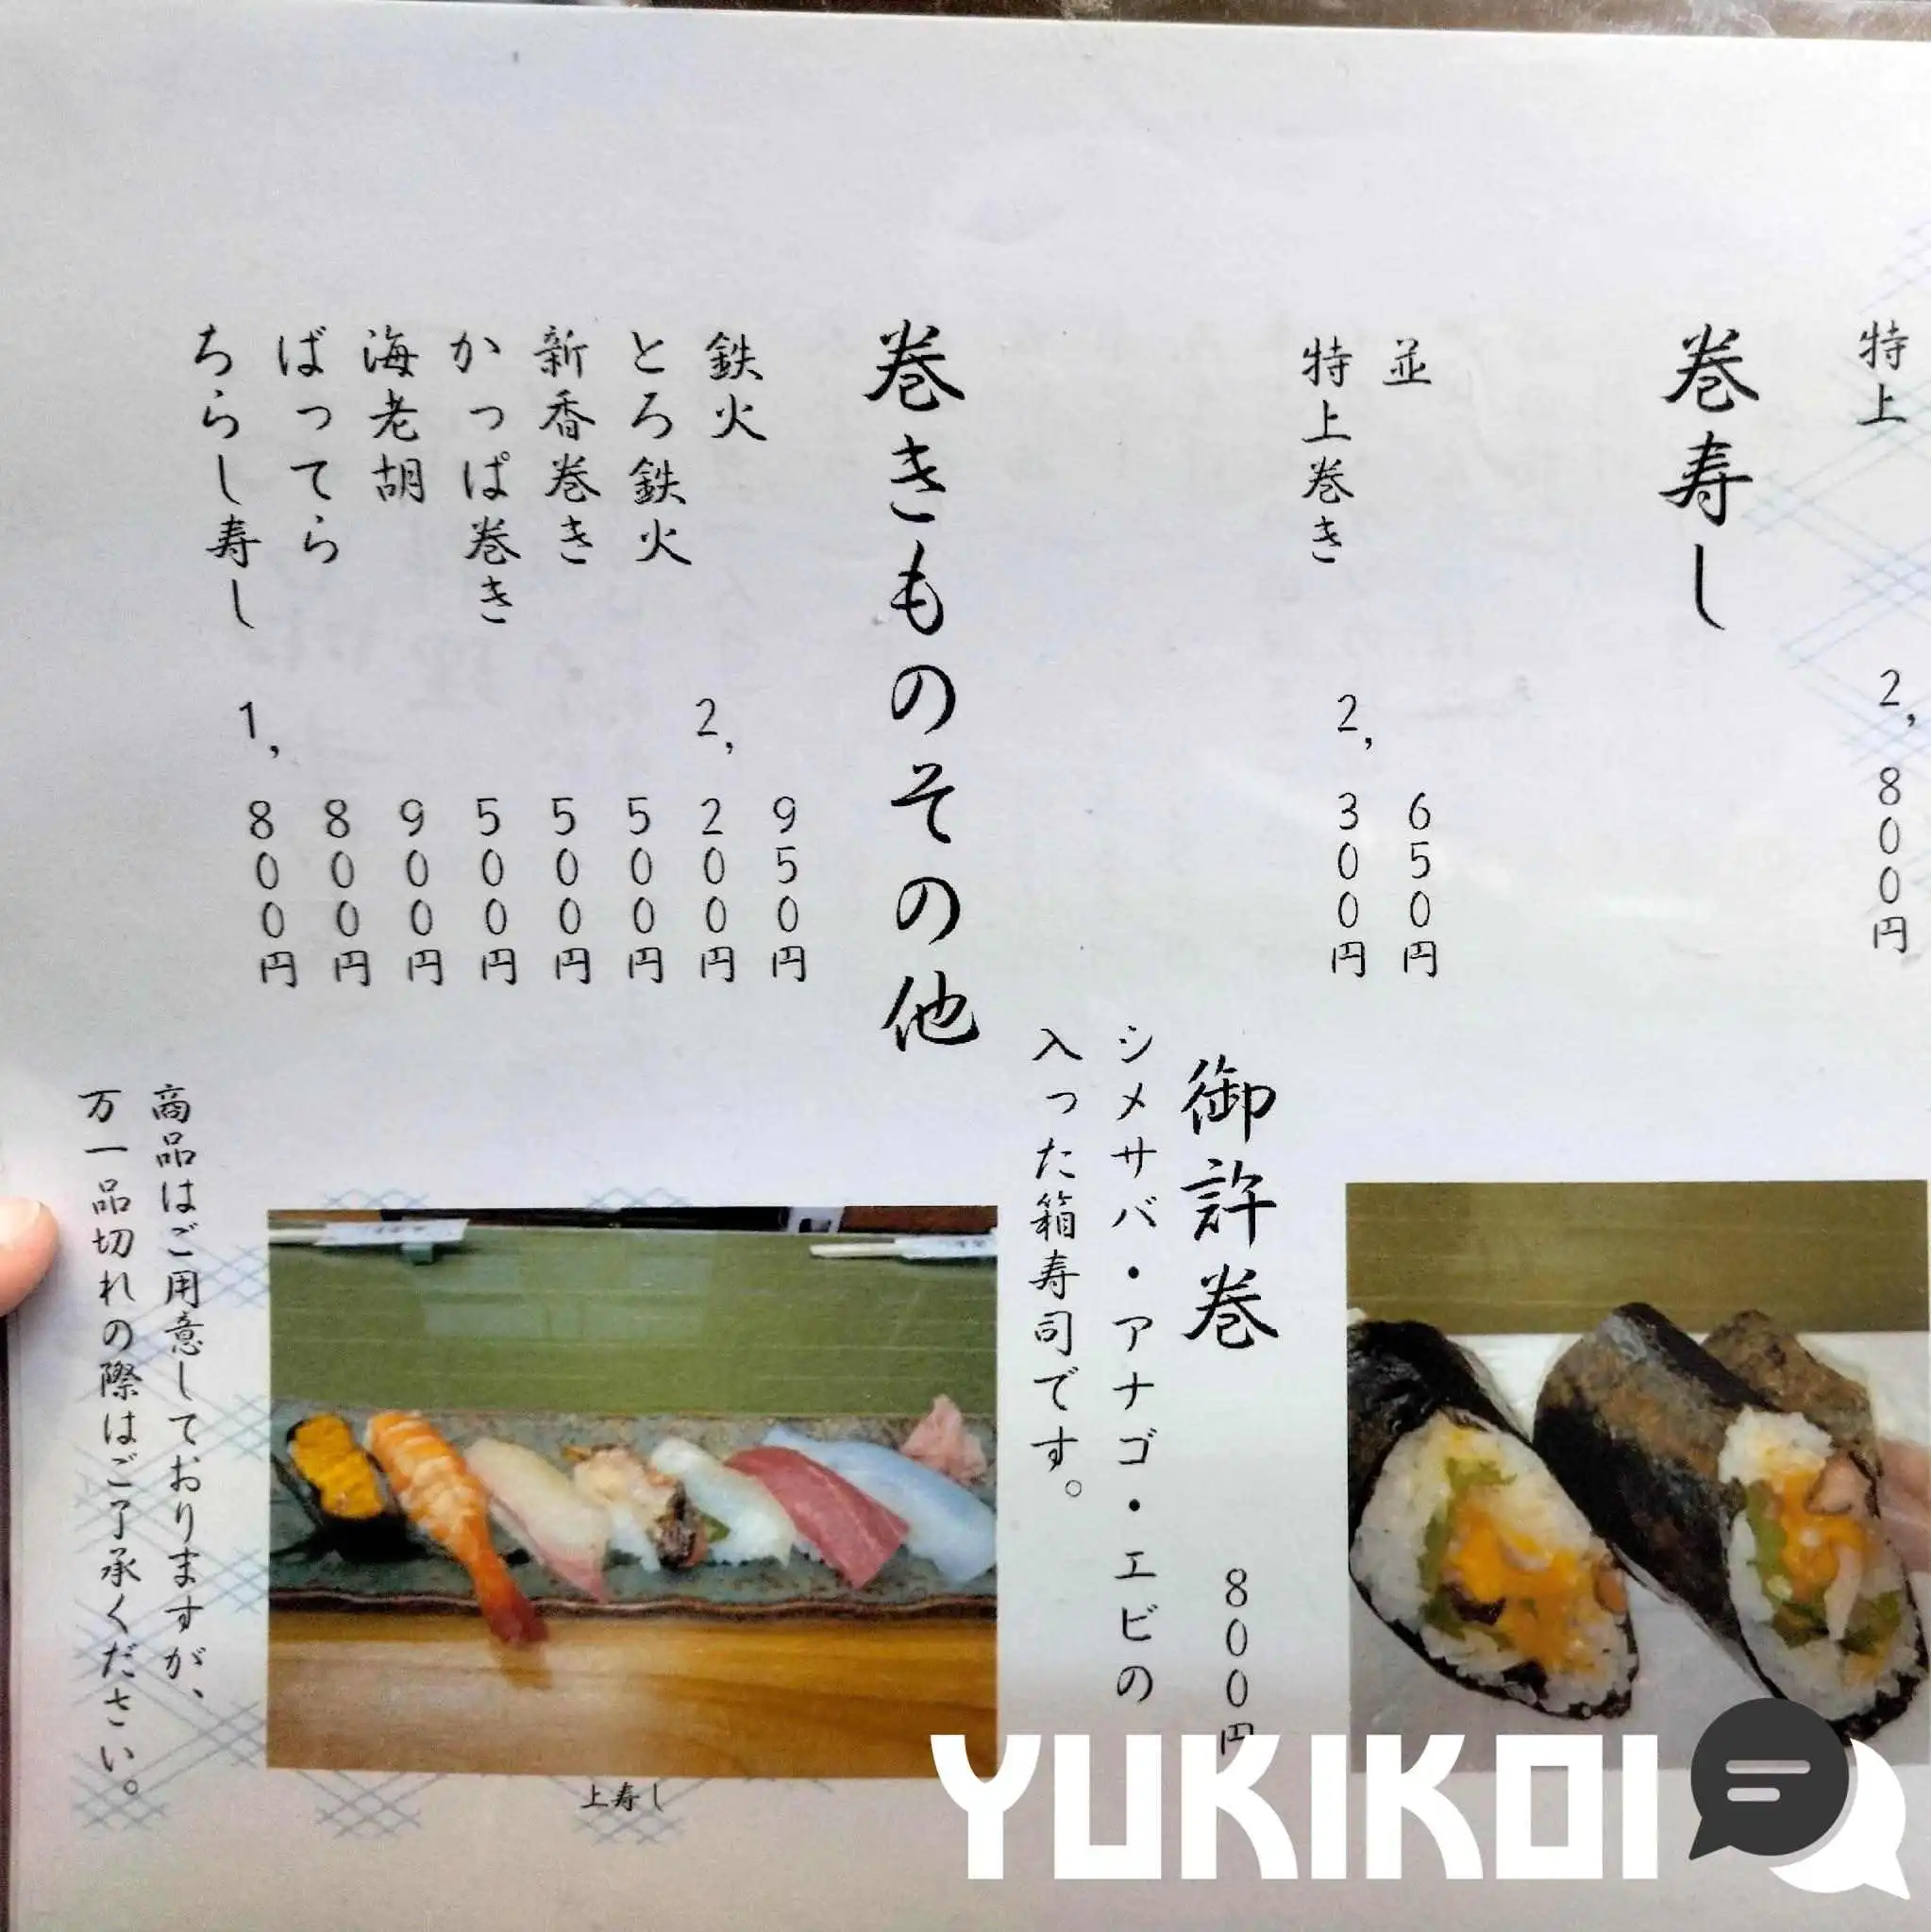 特上
2,800円
巻寿し
並
特上巻き
650円
2,300円
御許巻
800円
シメサバ・アナゴ・エビの
入った箱寿司です。
巻きものその他
鉄火
とろ鉄火
新香巻き
かっぱ巻き
海老胡
ばってら
ちらし寿し
950円
2,200円
500円
500円
500円
900円
800円
1,800円
上寿し
商品はご用意しておりますが、
万一品切れの際はご了承ください。
YUKIKOI